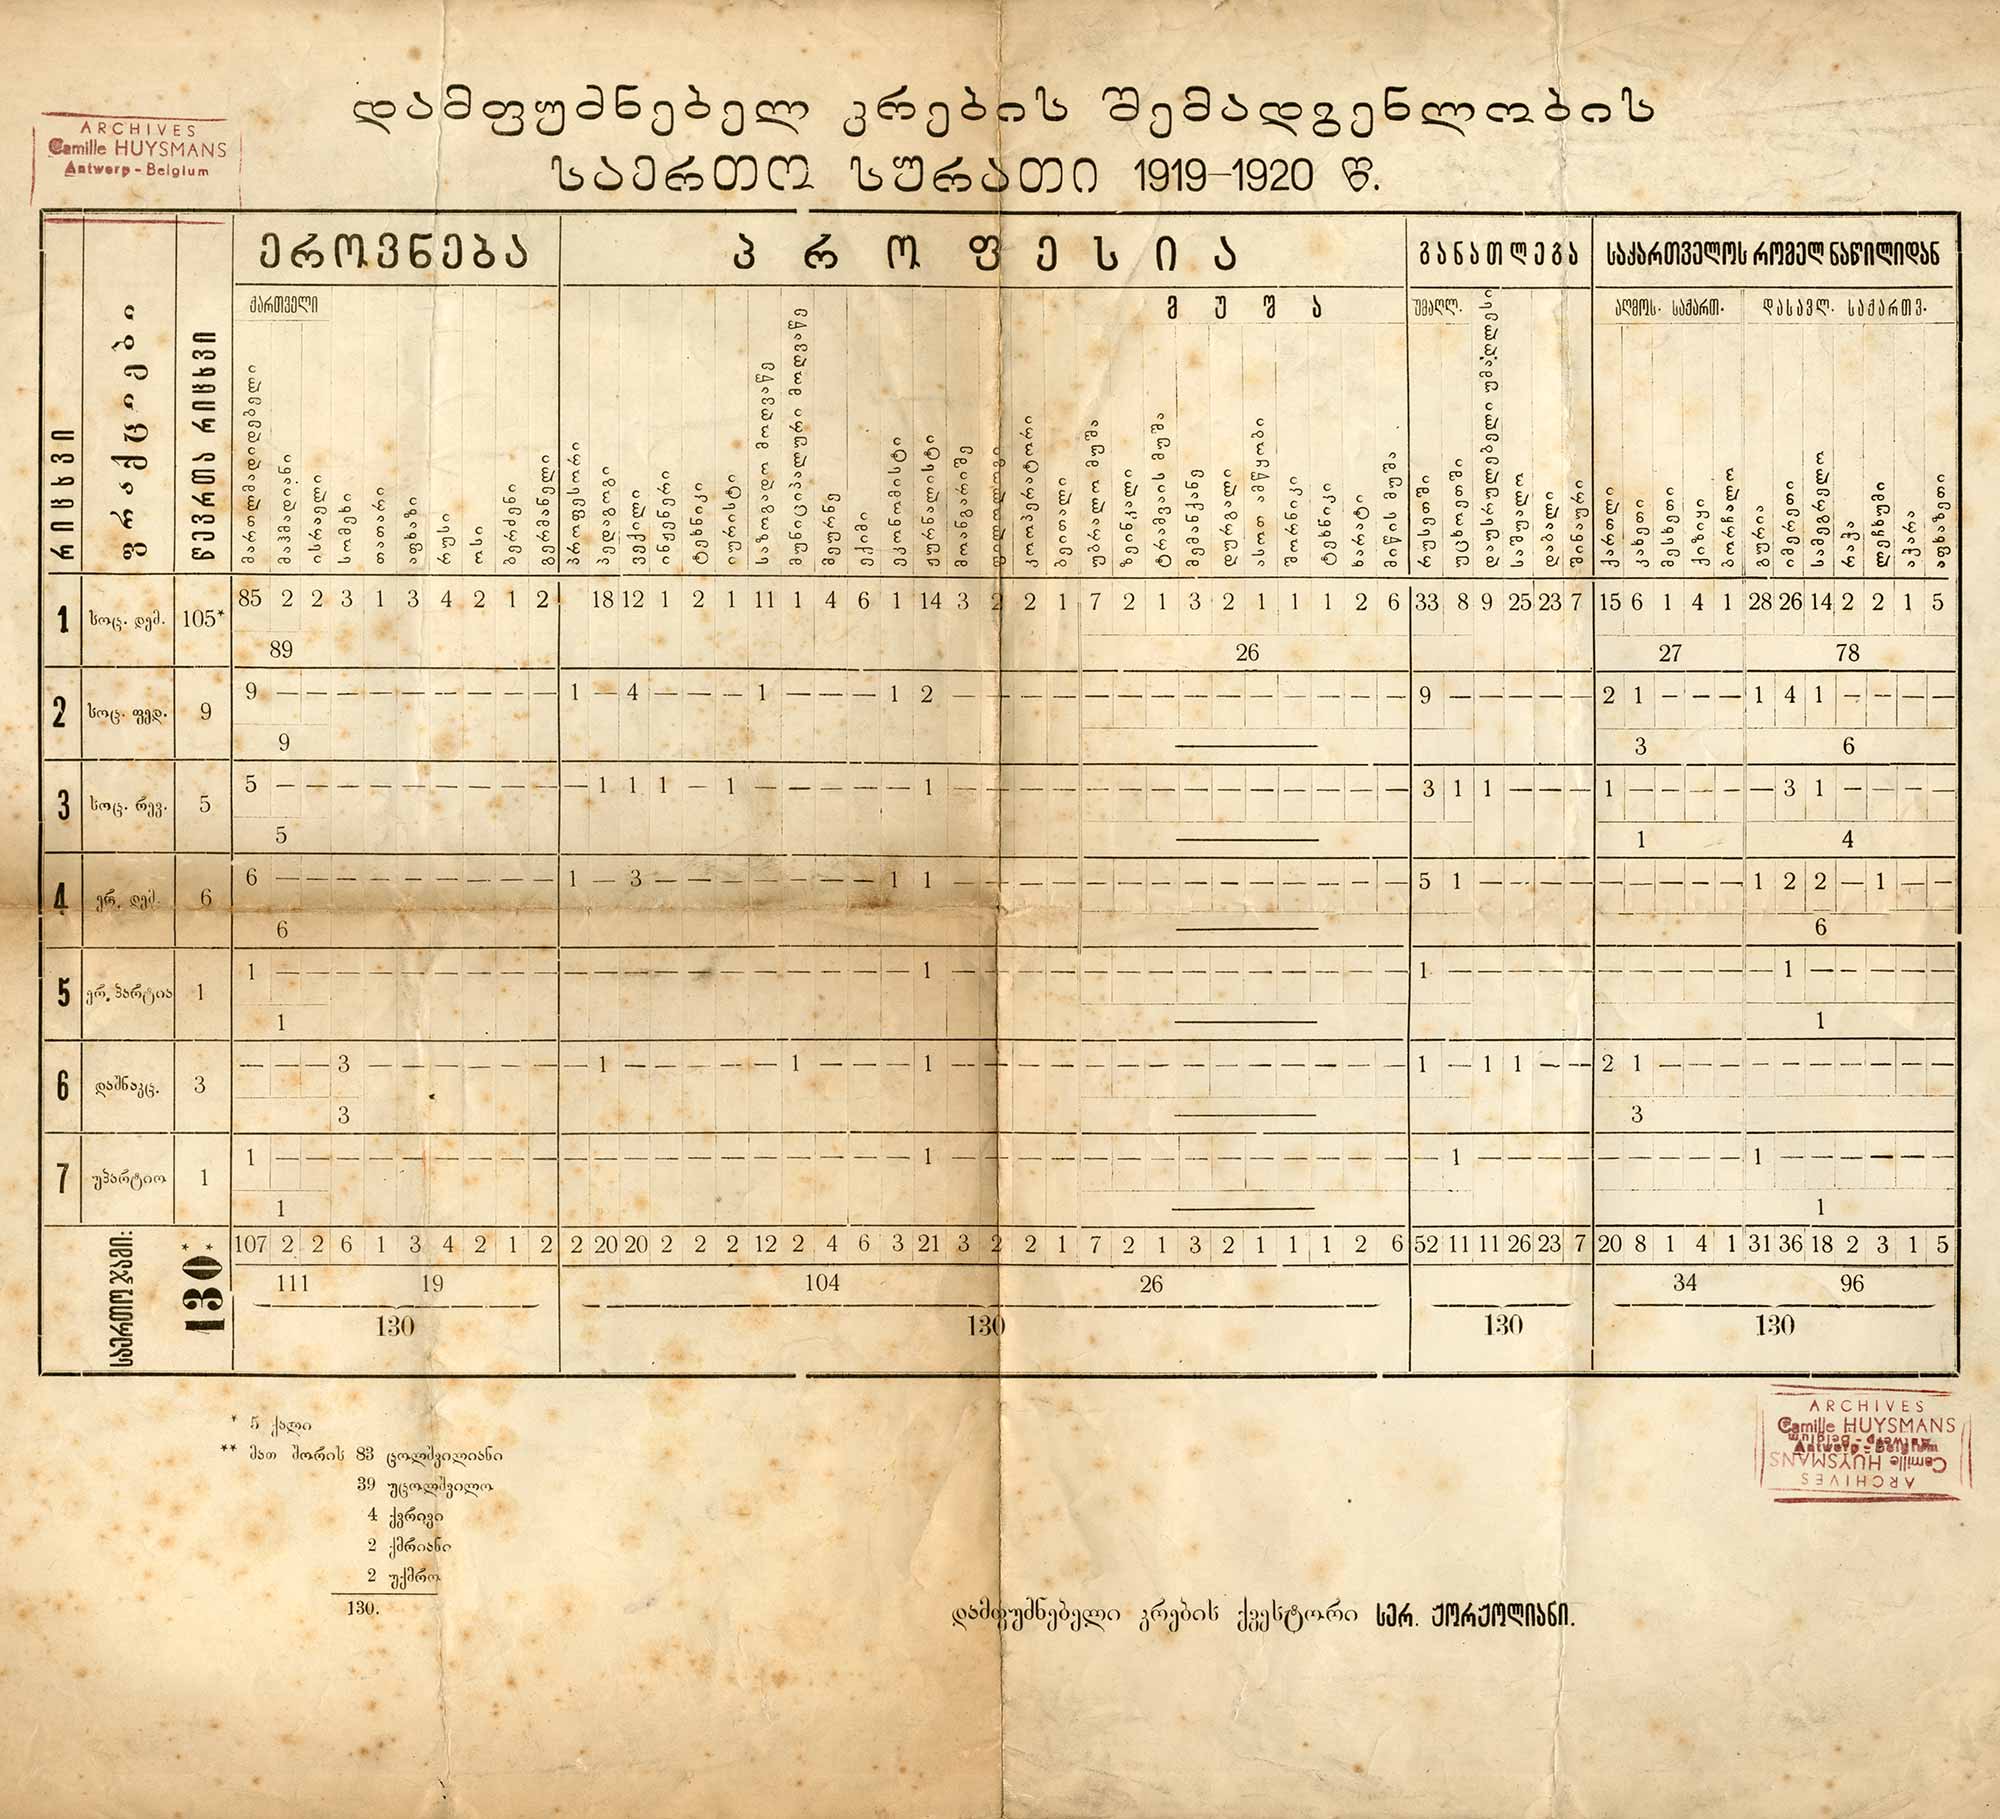 დამფუძნებელ კრების შემადგენლობის
საერთო სურათი 1919–1920 წ.
ARCHIVES
Camille HUYSMANS
Antwerp - Belgium
რიცხვი
ფრაქციები
წევრთა რიცხვი
ეროვნება
პროფესია
განათლება
საქართველოს რომელ ნაწილიდან
ქართველი
მუშა
უმაღლ.
აღმოს. საქართ.
დასავლ. საქართვ.
მართლმადიდებელი
მაჰმადიანი
ისრაელი
სომეხი
თათარი
აფხაზი
რუსი
ოსი
ბერძენი
გერმანელი
პროფესორი
პედაგოგი
ვექილი
ინჟენერი
ტეხნიკი
იურისტი
საზოგადო მოღვაწე
მუნიციპალური მოღვაწე
მეურნე
ექიმი
ეკონომისტი
ჟურნალისტი
მოანგარიშე
ფილოლოგი
კოოპერატორი
ბეითალი
უბრალო მუშა
ზეინკალი
ტრამვაის მუშა
მემანქანე
დურგალი
ასოთ ამწყობი
შორნიკი
ტეხნიკი
ხარატი
მიწის მუშა
რუსეთში
უცხოეთში
დაუსრულებელი უმაღლესი
საშუალო
დაბალი
შინაური
ქართლი
კახეთი
მესხეთი
ქიზიყი
ბორჩალო
გურია
იმერეთი
სამეგრელო
რაჭა
ლეჩხუმი
აჭარა
აფხაზეთი
1 სოც. დემ. 105* 85 2 2 3 1 3 4 2 1 2 18 12 1 2 1 11 1 4 6 1 14 3 2 2 1 7 2 1 3 2 1 1 1 2 6 33 8 9 25 23 7 15 6 1 4 1 28 26 14 2 2 1 5
89 26 27 78
2 სოც. ფედ. 9 9 — — — — — — — — — 1 — 4 — — — 1 — — — 1 2 — — — — — — — — — — — — — — 9 — — — — — 2 1 — — — 1 4 1 — — — —
9 — 3 6
3 სოც. რევ. 5 5 — — — — — — — — — — 1 1 1 — 1 — — — — — 1 — — — — — — — — — — — — — — 3 1 1 — — — 1 — — — — — 3 1 — — — —
5 — 1 4
4 ერ. დემ. 6 6 — — — — — — — — — 1 — 3 — — — — — — — 1 1 — — — — — — — — — — — — — — 5 1 — — — — — — — — — 1 2 2 — 1 — —
6 — 6
5 ერ. პარტია 1 1 — — — — — — — — — — — — — — — — — — — — 1 — — — — — — — — — — — — — — 1 — — — — — — — — — — — 1 — — — — —
1 — 1
6 დაშნაკც. 3 — — — 3 — — — — — — — 1 — — — — — 1 — — — 1 — — — — — — — — — — — — — — 1 — 1 1 — — 2 1 — — — — — — — — — —
3 — 3
7 უპარტიო 1 1 — — — — — — — — — — — — — — — — — — — — 1 — — — — — — — — — — — — — — — 1 — — — — — — — — — 1 — — — — — —
1 — 1
საერთო ჯამი: 130** 107 2 2 6 1 3 4 2 1 2 2 20 20 2 2 2 12 2 4 6 3 21 3 2 2 1 7 2 1 3 2 1 1 1 2 6 52 11 11 26 23 7 20 8 1 4 1 31 36 18 2 3 1 5
111 19 104 26 34 96
130 130 130 130
* 5 ქალი
** მათ შორის 83 ცოლშვილიანი
39 უცოლშვილო
4 ქვრივი
2 ქმრიანი
2 უქმრო
130.
დამფუძნებელი კრების ქვესტორი სერ. ჟორჟოლიანი.
ARCHIVES
Camille HUYSMANS
Antwerp - Belgium
Antwerp - Belgium
Camille HUYSMANS
ARCHIVES